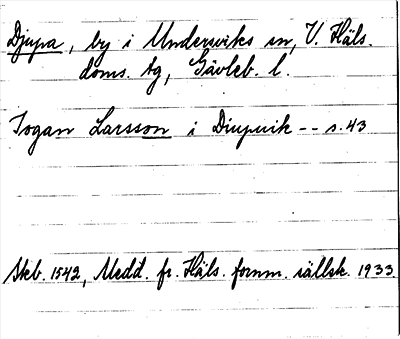 Djupa, by i Undersviks sn, V. Häls.
doms. tg, Gävleb. l.
Jogan Larsson i Diupuik -- s. 43
Skb. 1542, Medd. fr. Häls. fornm. sällsk. 1933